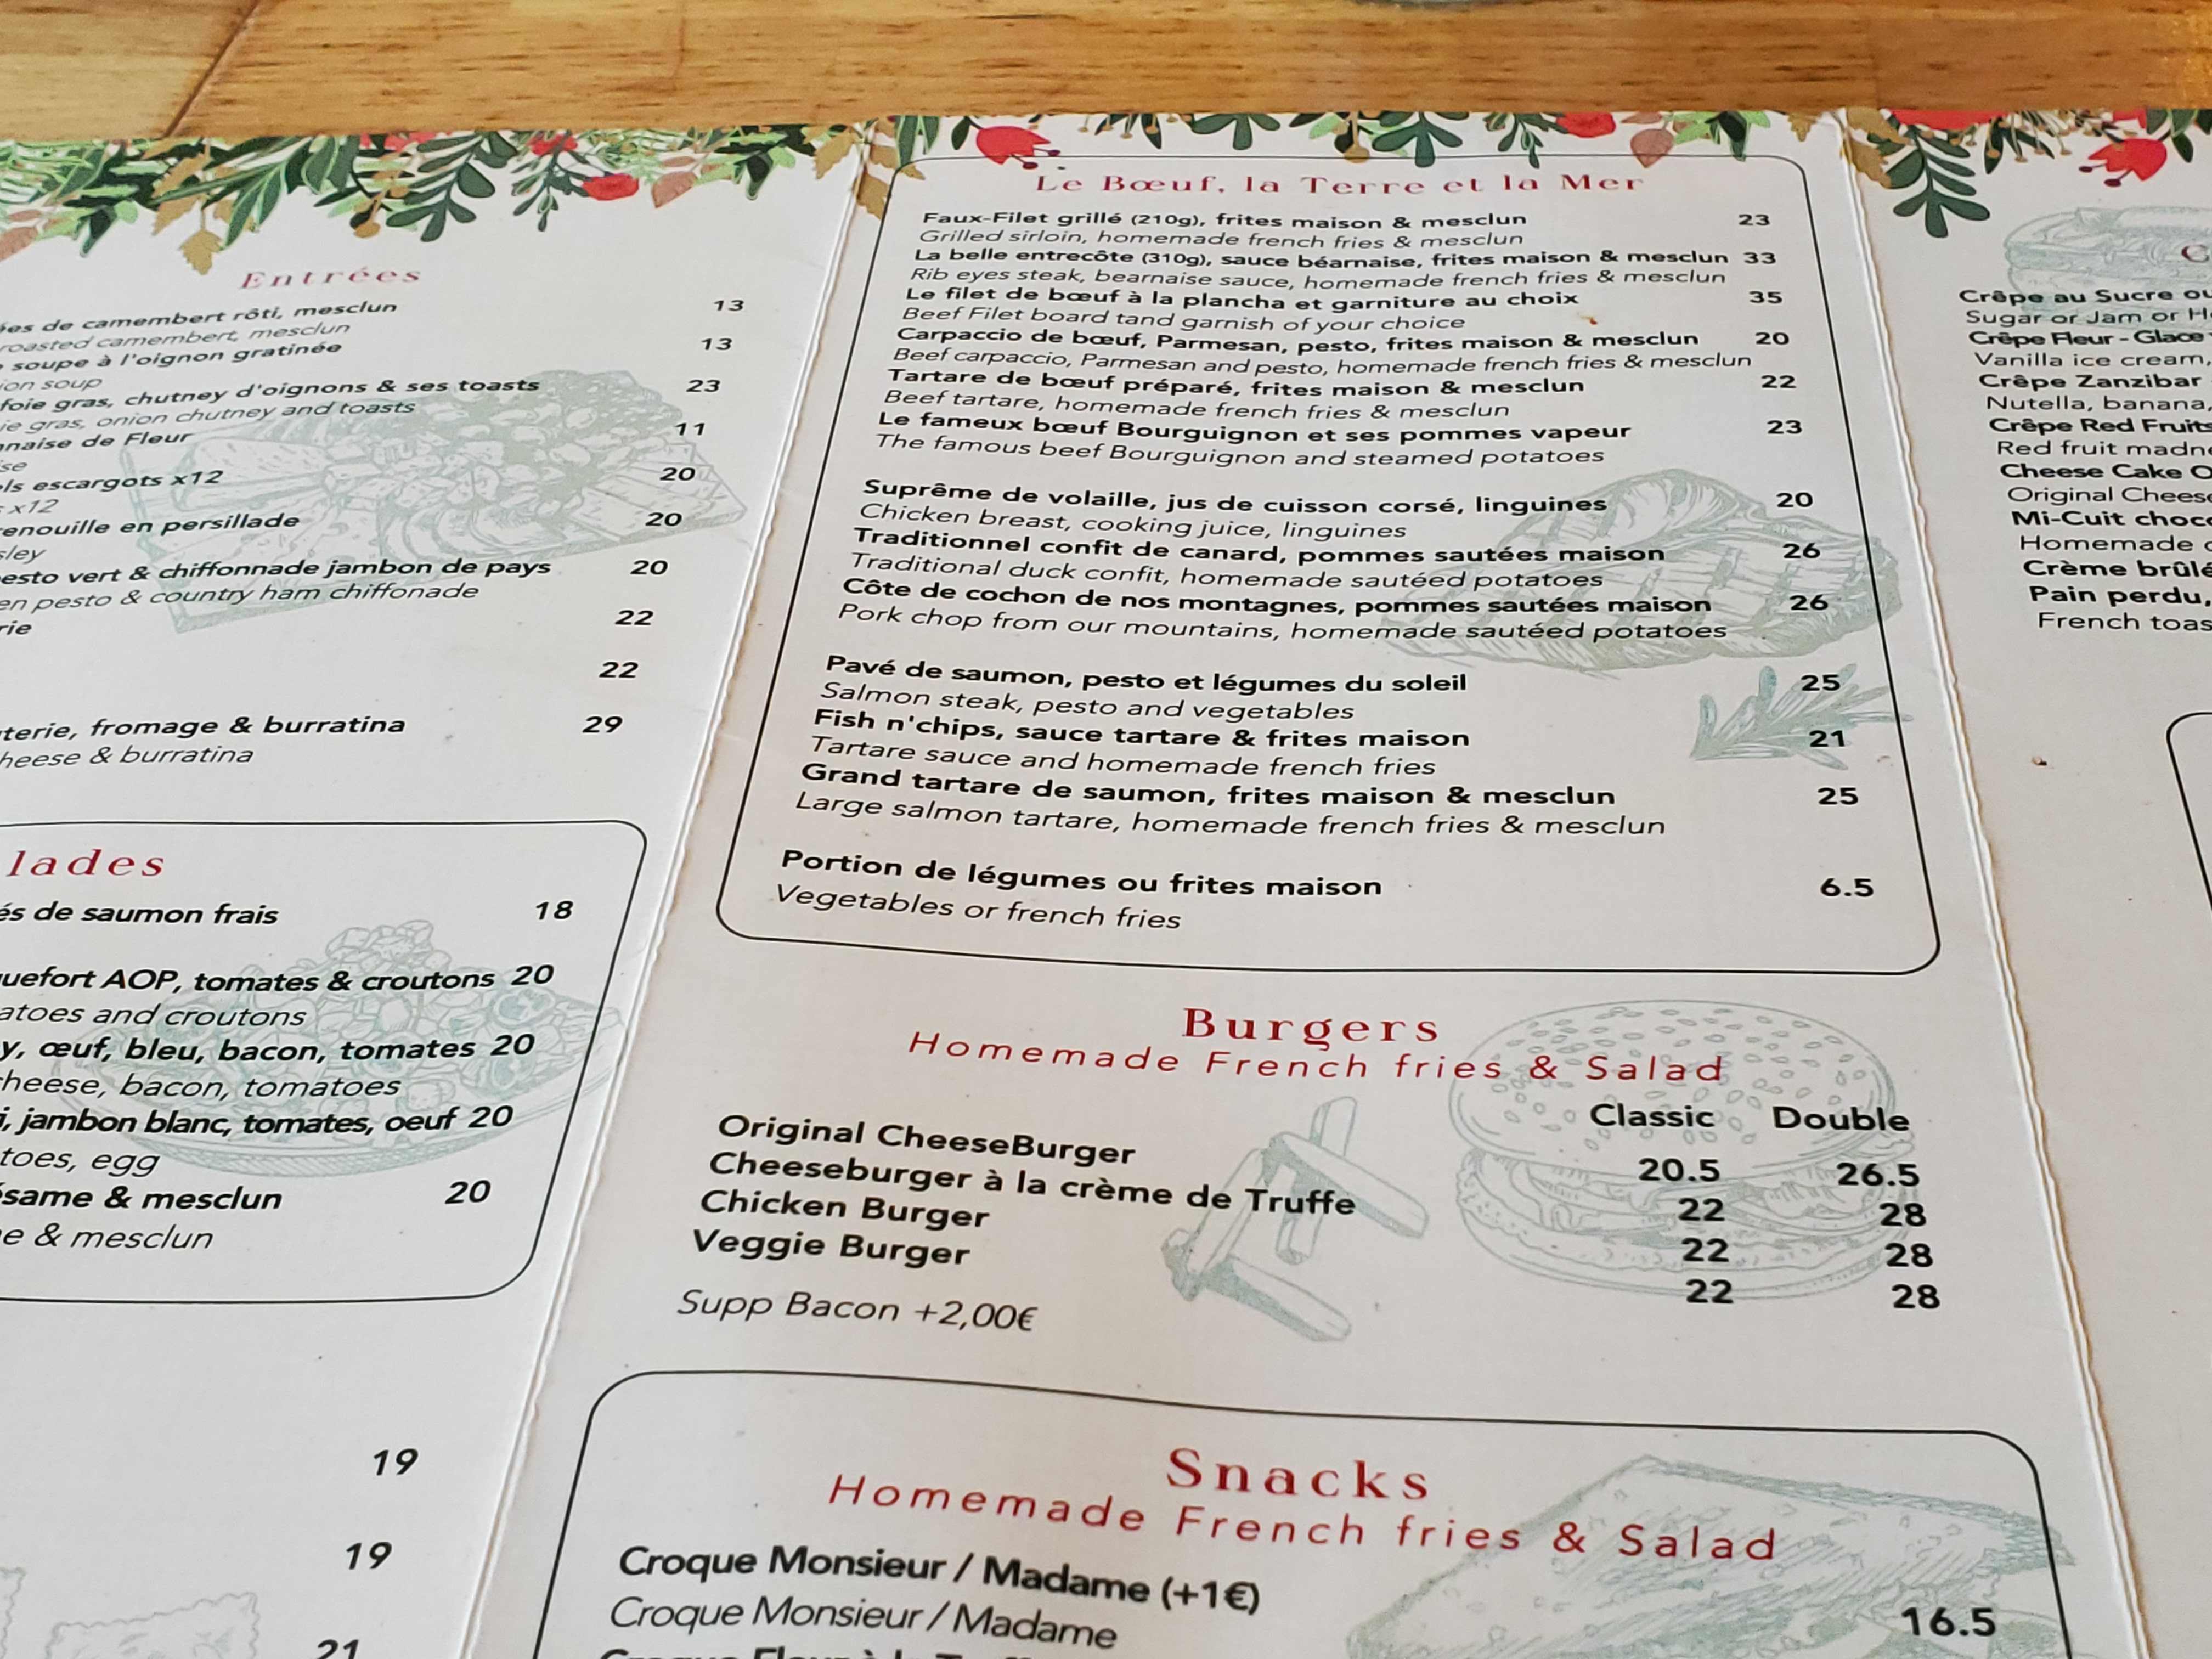 Entrées
de camembert rôti, mesclun 13
roasted camembert, mesclun
soupe à l'oignon gratinée 13
soup
foie gras, chutney d'oignons & ses toasts 23
gras, onion chutney and toasts
de Fleur 11
escargots x12 20
x12
en persillade 20
vert & chiffonnade jambon de pays 20
pesto & country ham chiffonade
22
22
fromage & burratina 29
& burratina
de saumon frais 18
AOP, tomates & croutons 20
and croutons
œuf, bleu, bacon, tomates 20
bacon, tomatoes
jambon blanc, tomates, oeuf 20
egg
& mesclun 20
& mesclun
19
19
21
Le Bœuf, la Terre et la Mer
Faux-Filet grillé (210g), frites maison & mesclun 23
Grilled sirloin, homemade french fries & mesclun
La belle entrecôte (310g), sauce béarnaise, frites maison & mesclun 33
Rib eyes steak, bearnaise sauce, homemade french fries & mesclun
Le filet de bœuf à la plancha et garniture au choix 35
Beef Filet board tand garnish of your choice
Carpaccio de bœuf, Parmesan, pesto, frites maison & mesclun 20
Beef carpaccio, Parmesan and pesto, homemade french fries & mesclun
Tartare de bœuf préparé, frites maison & mesclun 22
Beef tartare, homemade french fries & mesclun
Le fameux bœuf Bourguignon et ses pommes vapeur 23
The famous beef Bourguignon and steamed potatoes
Suprême de volaille, jus de cuisson corsé, linguines 20
Chicken breast, cooking juice, linguines
Traditionnel confit de canard, pommes sautées maison 26
Traditional duck confit, homemade sautéed potatoes
Côte de cochon de nos montagnes, pommes sautées maison 26
Pork chop from our mountains, homemade sautéed potatoes
Pavé de saumon, pesto et légumes du soleil 25
Salmon steak, pesto and vegetables
Fish n'chips, sauce tartare & frites maison 21
Tartare sauce and homemade french fries
Grand tartare de saumon, frites maison & mesclun 25
Large salmon tartare, homemade french fries & mesclun
Portion de légumes ou frites maison 6.5
Vegetables or french fries
Burgers
Homemade French fries & Salad
Classic Double
Original CheeseBurger 20.5 26.5
Cheeseburger à la crème de Truffe 22 28
Chicken Burger 22 28
Veggie Burger 22 28
Supp Bacon +2,00€
Snacks
Homemade French fries & Salad
Croque Monsieur / Madame (+1€)
Croque Monsieur / Madame 16.5
Crêpe au Sucre
Sugar or Jam or
Crêpe Fleur - Glace
Vanilla ice cream,
Crêpe Zanzibar
Nutella, banana,
Crêpe Red Fruits
Red fruit
Cheese Cake
Original
Mi-Cuit
Homemade
Crème
Pain perdu,
French